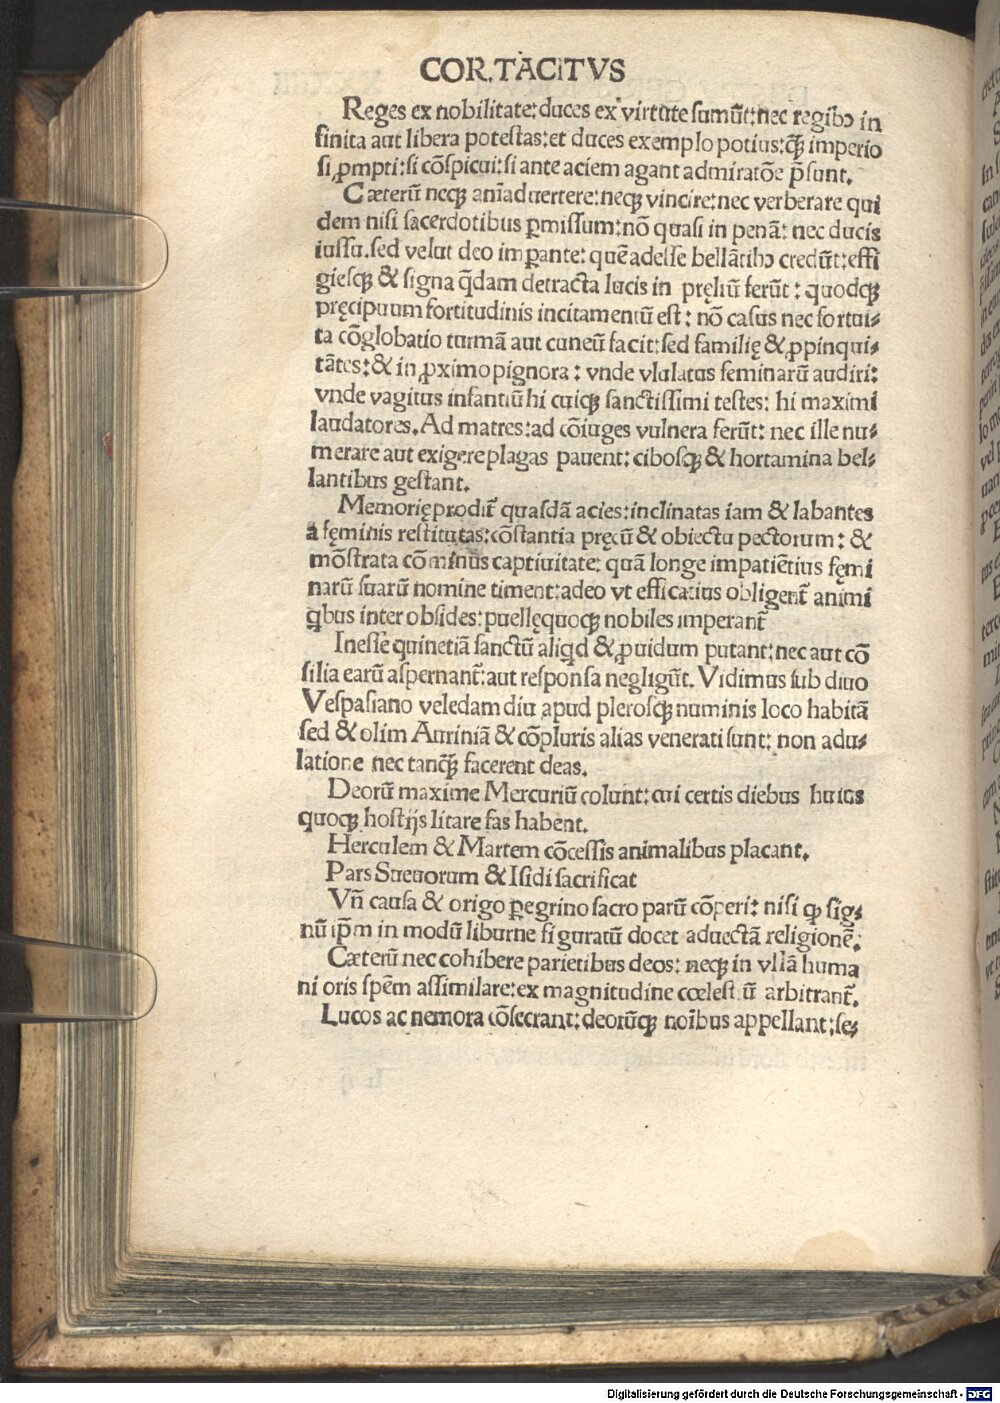 COR.TACITVS
Reges ex nobilitate: duces ex virtute sumūt: nec regibꝰ in
finita aut libera potestas: et duces exemplo potius: ꝙ̃ imperio
si ꝓmpti: si cōspicui: si ante aciem agant admiratōe p̄sunt.
Cæterū neqꝫ aniāduertere: neqꝫ vincire: nec verberare qui
dem nisi sacerdotibus ꝑmissum: nō quasi in penā: nec ducis
iussu. sed velut deo imꝑante: quē adesse bellātibꝰ credūt: effi
giesqꝫ & signa q̄dam detracta lucis in pręliū ferūt: quodqꝫ
pręcipuum fortitudinis incitamentū est: nō casus nec fortui-
ta cōglobatio turmā aut cuneū facit: sed familię & ꝓpinqui-
tātes: & in ꝓximo pignora: vnde vlulatus feminarū audiri:
vnde vagitus infantiū hi cuiqꝫ sanctissimi testes: hi maximi
laudatores. Ad matres: ad cōiuges vulnera ferūt: nec ille nu-
merare aut exigere plagas pauent: cibosqꝫ & hortamina bel-
lantibus gestant.
Memorię prodit̃ quasdā acies: inclinatas iam & labantes
a fęminis restitutas: cōstantia pręcū & obiectu pectorum: &
mōstrata cōminus captiuitate: quā longe impatiētius fęmi
narū suarū nomine timent: adeo vt efficatius obligent̃ animi
ꝗbus inter obsides: puellę quoqꝫ nobiles imperant̃
Inesse quinetiā sanctū aliꝗd & ꝓuidum putant: nec aut cō
silia earū aspernant̃: aut responsa negligūt. Vidimus sub diuo
Vespasiano veledam diu apud plerosqꝫ numinis loco habitā
sed & olim Auriniā & cōpluris alias venerati sunt: non adu-
latione nec tanꝙ̃ facerent deas.
Deorū maxime Mercuriū colunt: cui certis diebus huius
quoqꝫ hostijs litare fas habent.
Herculem & Martem cōcessis animalibus placant.
Pars Sueuorum & Isidi sacrificat
Vñ causa & origo ꝑegrino sacro parū cōperi: nisi ꝙ sig-
nū ip̄m in modū liburne figuratū docet aduectā religionē.
Cæterū nec cohibere parietibus deos: neqꝫ in vllā huma
ni oris spēm assimilare: ex magnitudine cœlestiū arbitrant̃.
Lucos ac nemora cōsecrant: deorūqꝫ noībus appellant: se-
Digitalisierung gefördert durch die Deutsche Forschungsgemeinschaft - DFG